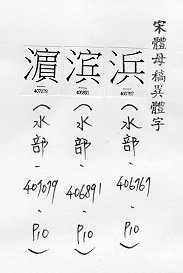 宋體母稿異體字
浜
406767
(水部-406767-P10)
滨
406891
(水部-406891-P10)
濵
407079
(水部-407079-P10)